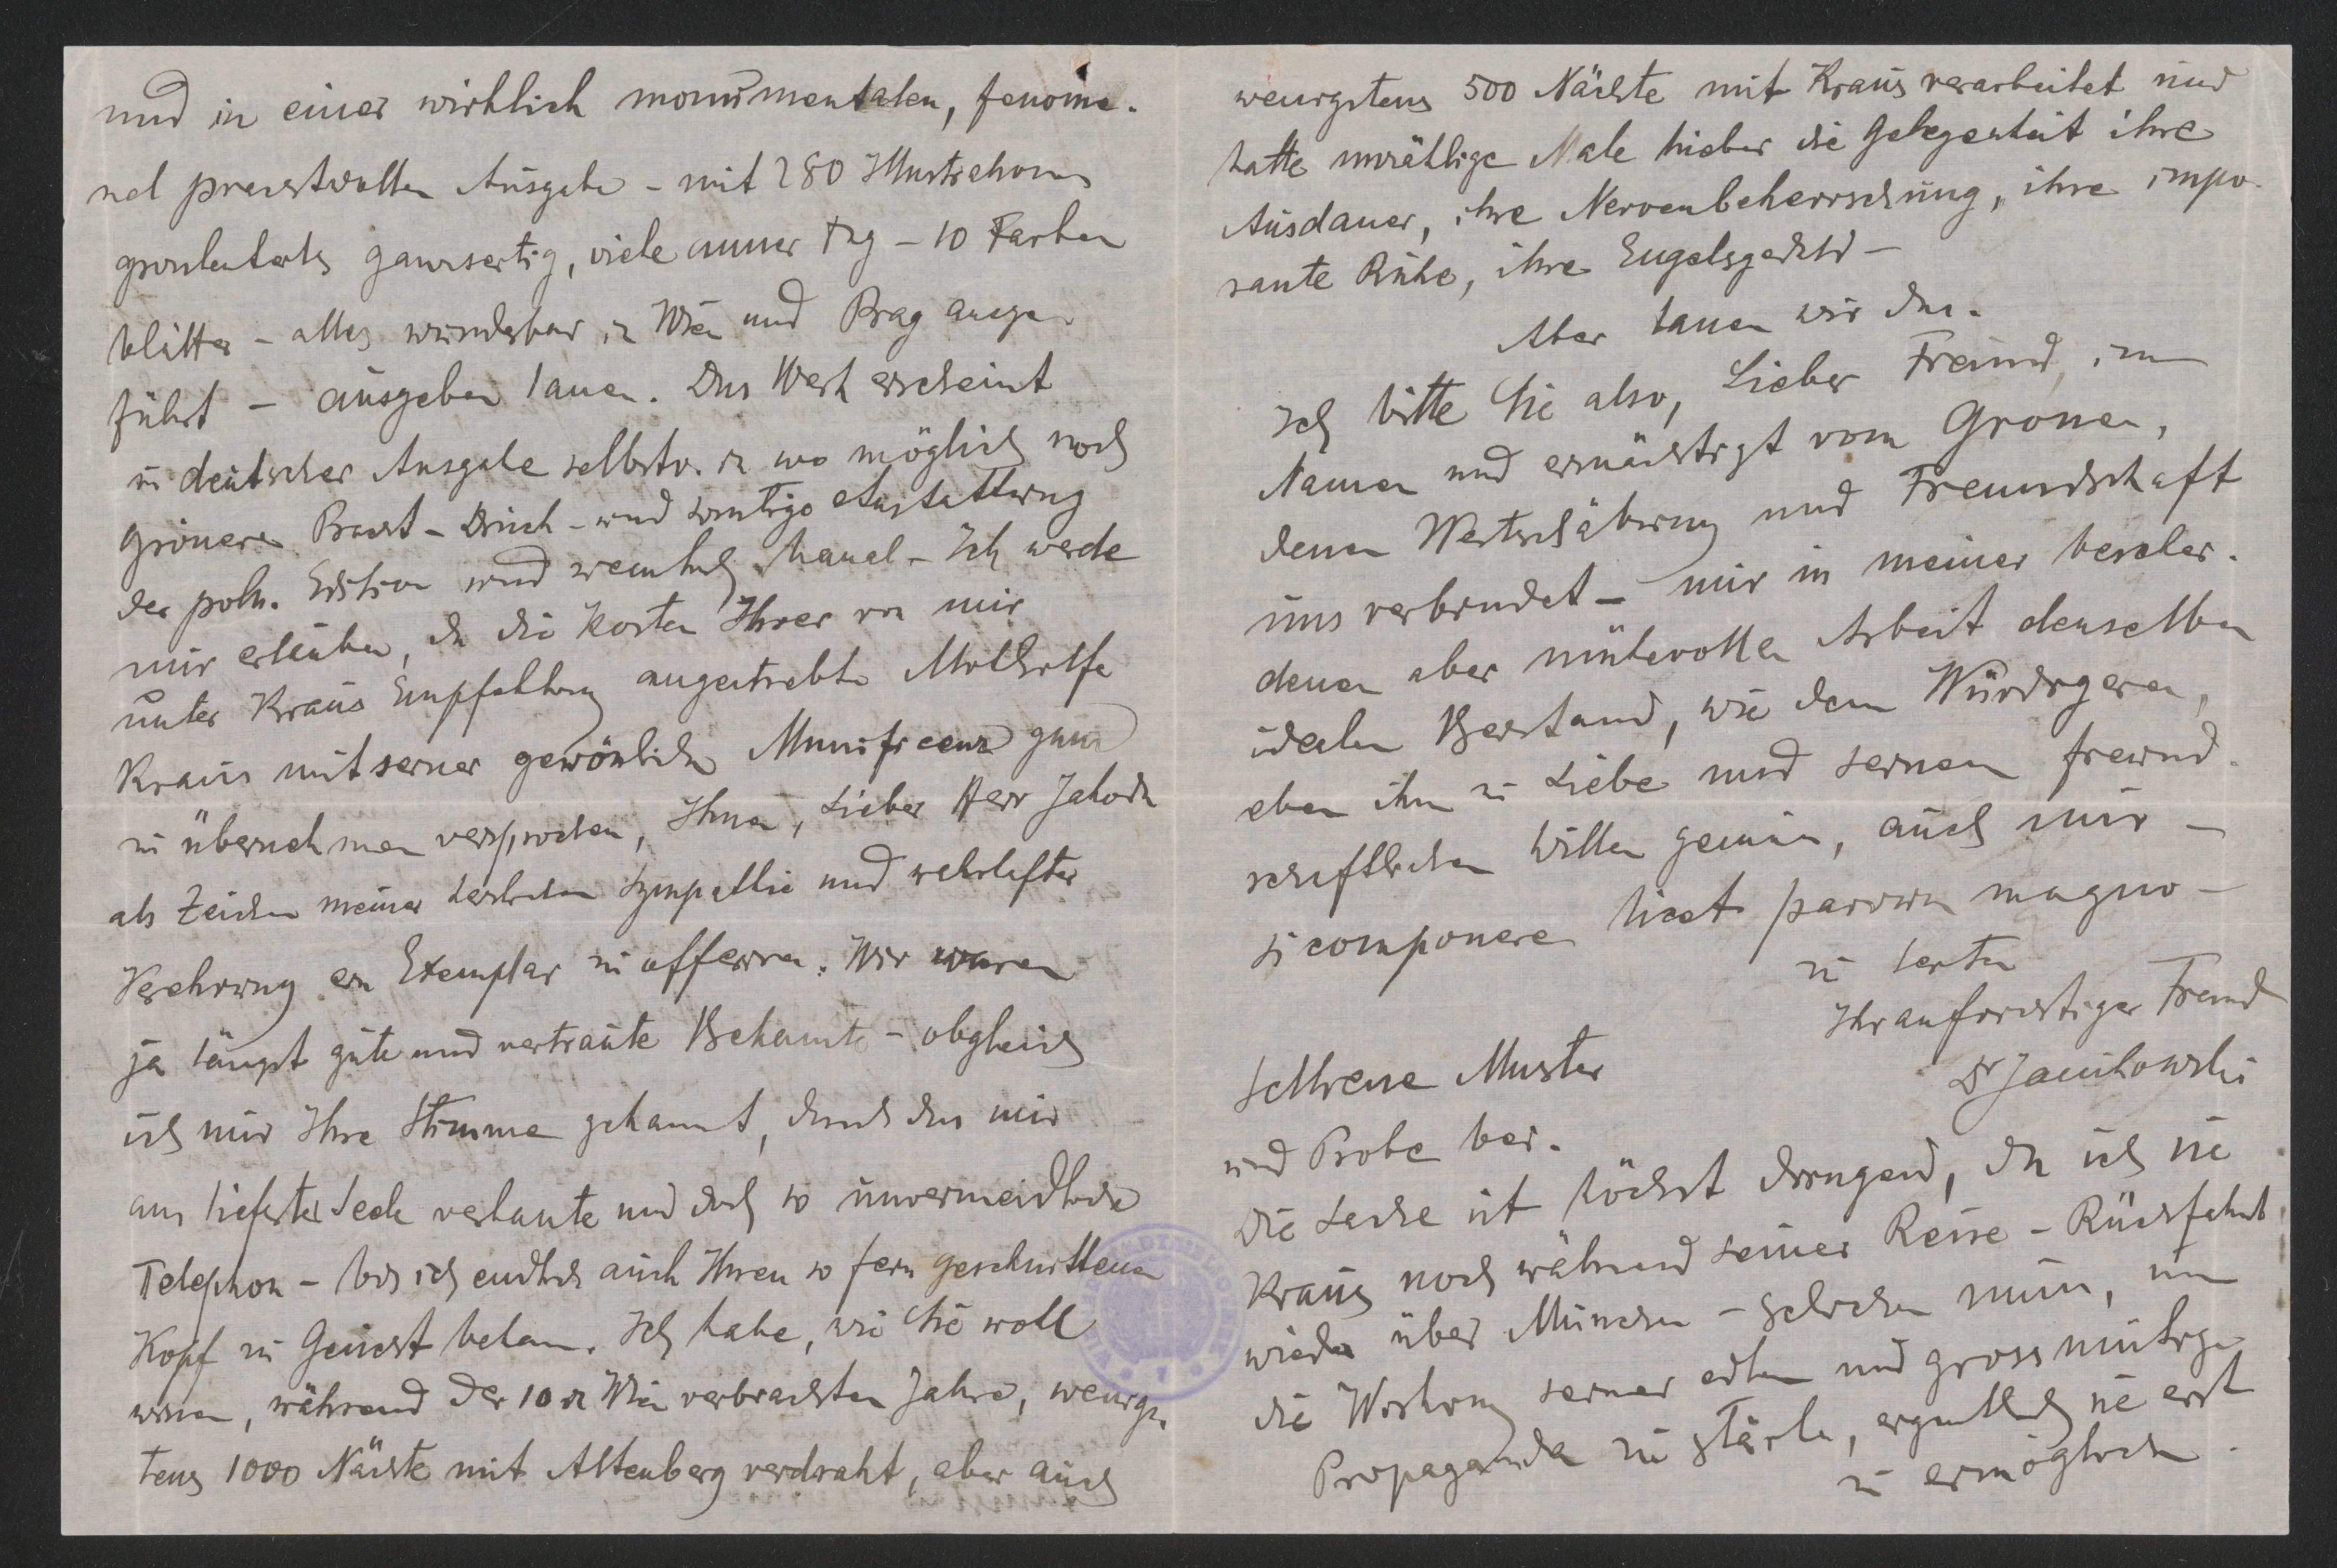 und in einer wirklich monumentalen, fenome-
nel prachtvollen Ausgabe - mit 280 Illustrationen
grösstenteils ganzseitig, viele - 10 Farben
blätter - alles wunderbar in Wien und Prag ausge-
führt - ausgeben lassen. Das Werk erscheint
in deutscher Ausgabe selbstv. in wo möglich noch
grösserer Pracht - Druck - und sonstige Austattung
der poln. Edition und Ich werde
mir erlauben, da die Kosten Ihrer von mir
unter Kraus Empfehlung angestrebte Mithilfe
Kraus mit seiner gewönlichen Munificenz ganz
zu übernehmen versprochen, Ihnen, Lieber Herr Jahoda
als Zeichen meiner herzlichen Sympathie und wahrhafter
Verehrung ein Exemplar zu offerieren. Wir waren
ja längst gute und vertraute Bekannte - obgleich
ich nur Ihre Stimme gekannt, durch das mir
aus tiefster Seele verhasste und doch so unvermeidliche
Telephon - bis ich endlich auch Ihren so fein geschnittenen
Kopf zu Gesicht bekam. Ich habe, wie Sie woll
wissen, während der 10 in Wien verbrachten Jahre, wenigs-
tens 1000 Nächte mit Altenberg verdraht, aber auch
wenigstens 500 Nächte mit Kraus verarbeitet und
hatte unzählige Male hieber die Gelegenheit ihre
Ausdauer, ihre Nervenbeherrschung, ihre impo-
sante Ruhe, ihre Engelsgeduld -
Aber lassen wir das.
Ich bitte Sie also, Lieber Freund, im
Namen und ermächtigt vom Grossen,
dessen Wertschätzung und Freundschaft
uns verbindet - mir in meiner beschei-
denen aber mühevollen Arbeit denselben
idealen Beistand, wie dem Würdigeren,
eben ihm zu Liebe und seinem freund-
schaftlichen Willen gemäss, auch mir -
si componere licet parvum magno -
zu leisten
Ihr aufrichtiger Freund
Dr Janikowski
Schliesse Muster
und Probe bei.
Die Sache ist höchst dringend, da ich sie
Kraus noch während seiner Reise - Rückfahrt
wieder über München - schicken muss, um
die Wirkung seiner edlen und grossmütigen
Propaganda zu stärken, eigentlich sie erst
zu ermöglichen.